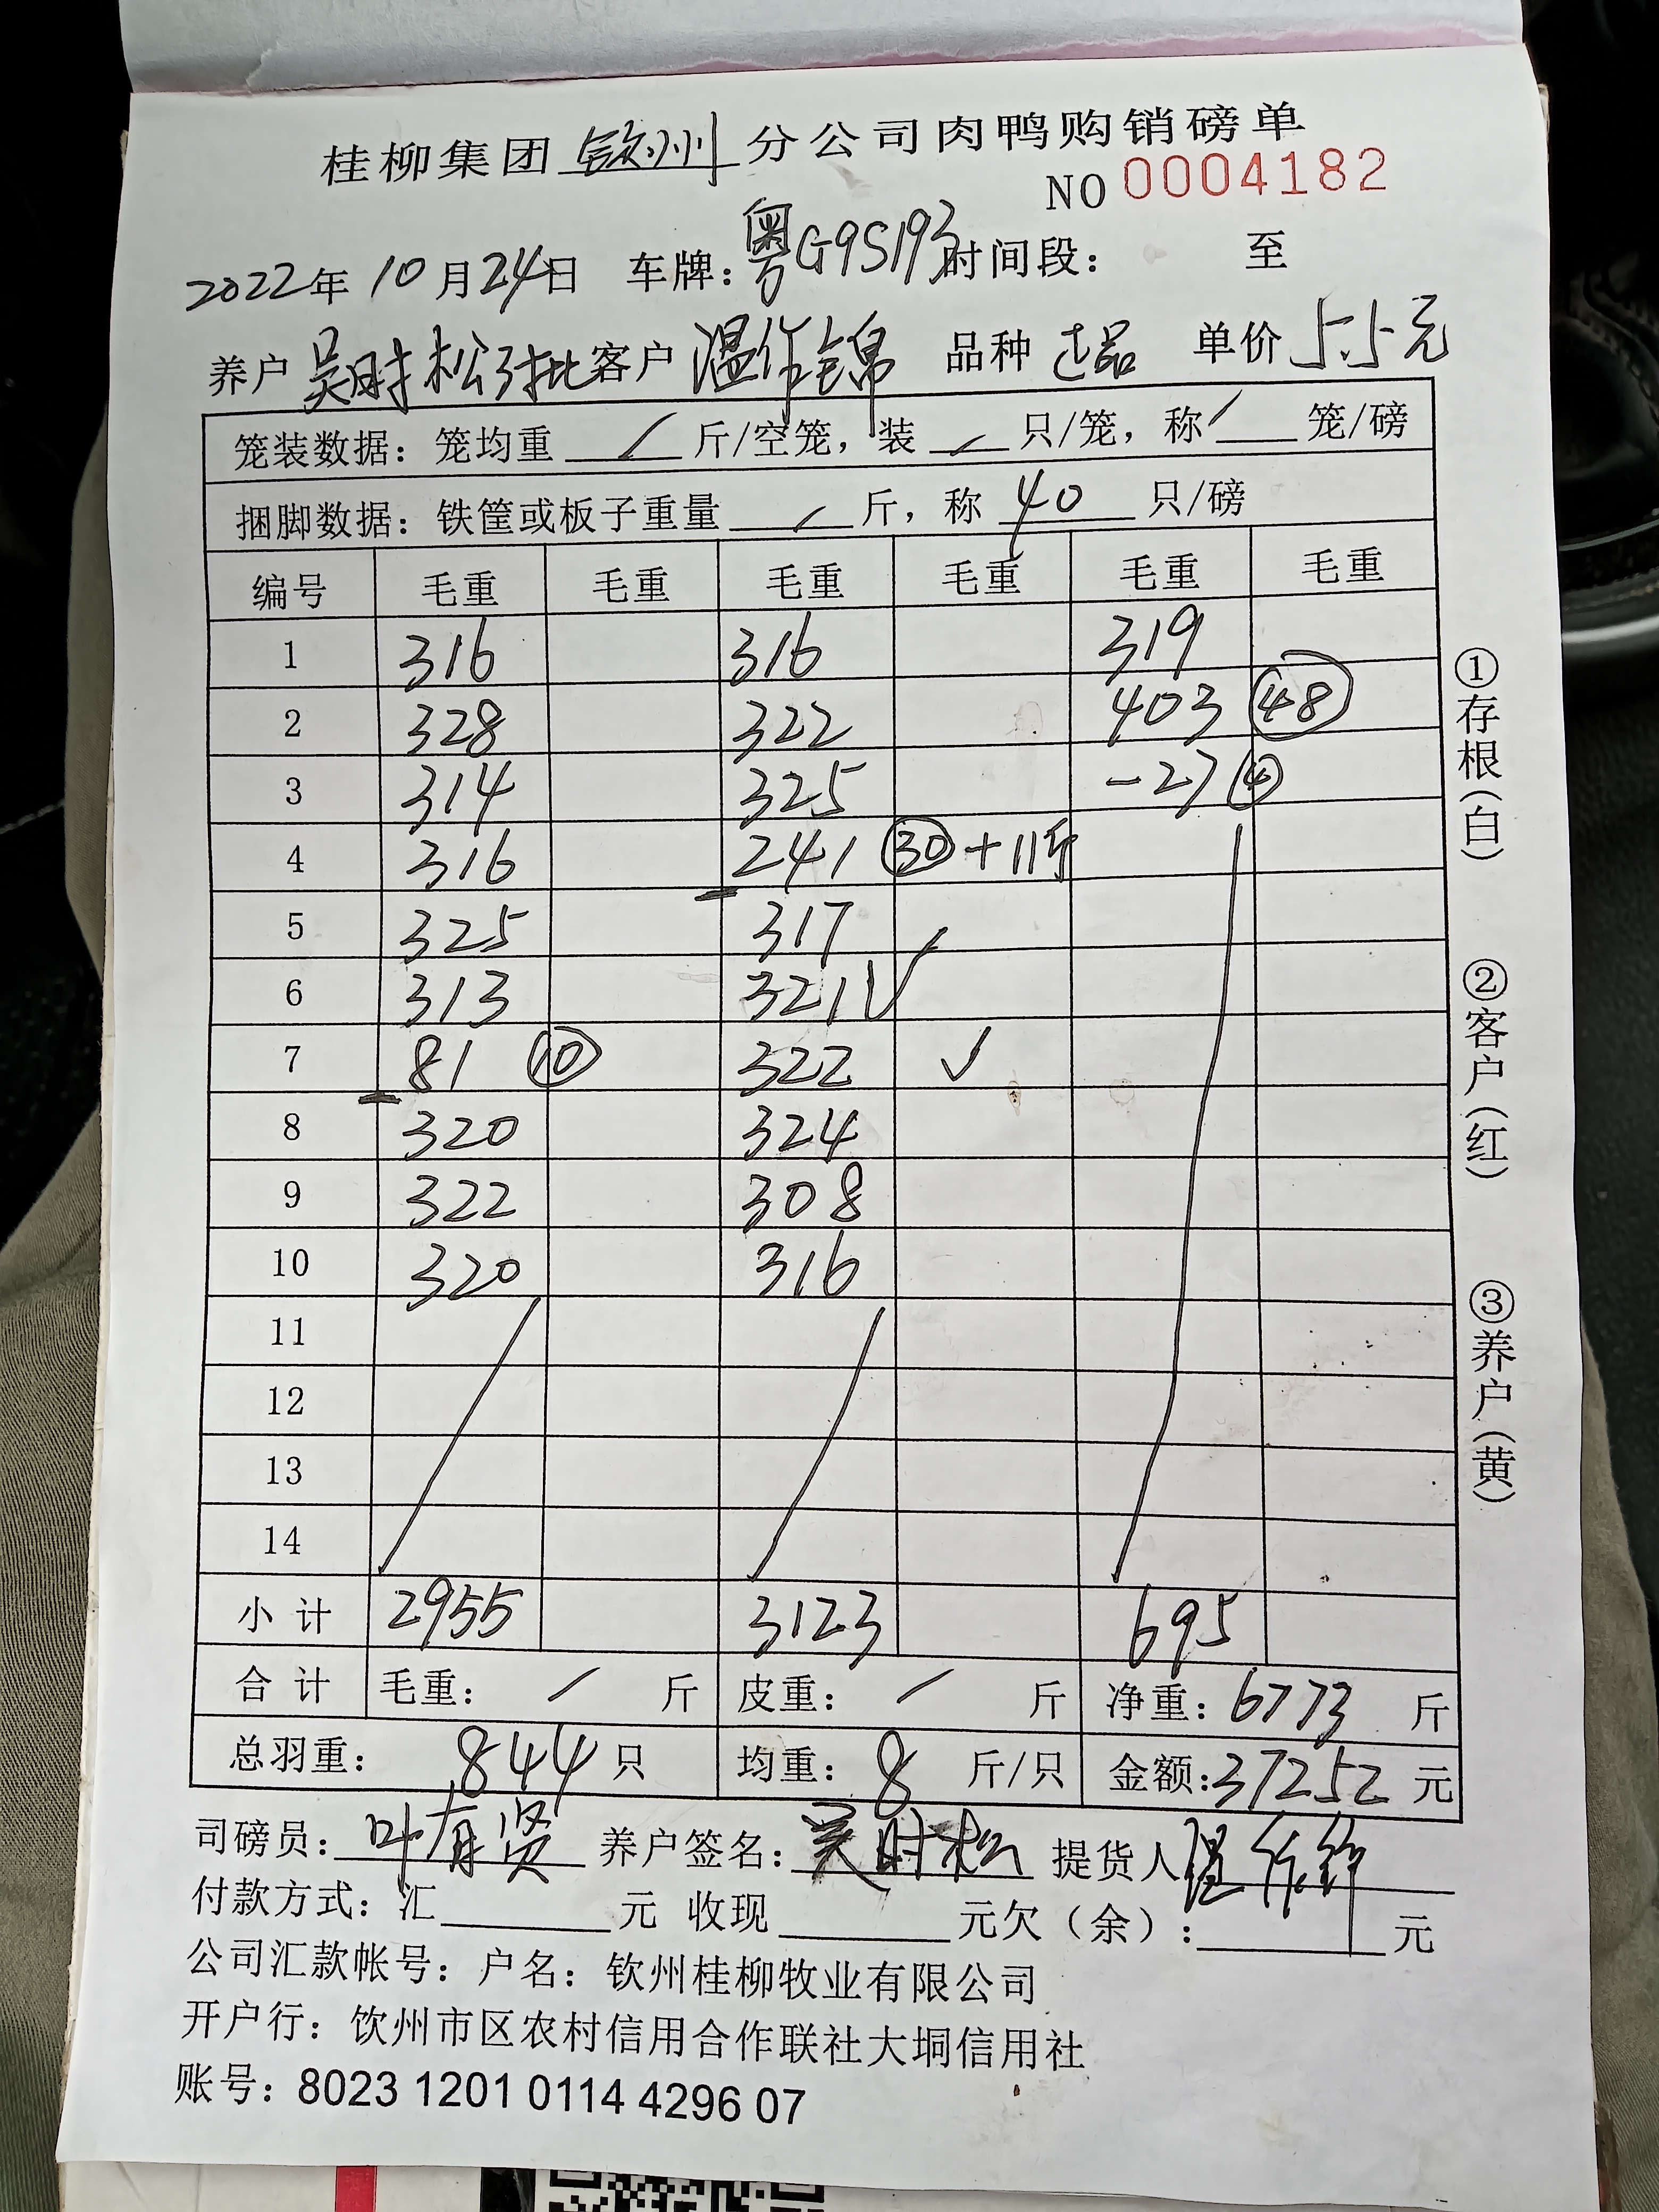 桂柳集团 钦州 分公司肉鸭购销磅单
NO 0004182
2022年 10月24日 车牌:粤G9S193 时间段: 至
养户 吴时松3批 客户 温作锦 品种 过品 单价 5.5元
笼装数据: 笼均重 / 斤/空笼, 装 / 只/笼, 称 / 笼/磅
捆脚数据: 铁筐或板子重量 / 斤, 称 40 只/磅
编号 毛重 毛重 毛重 毛重 毛重 毛重
1 316 316 319
2 328 322 403 ㊽
3 314 325 -27 ④
4 316 241 ㉚+11斤
5 325 317
6 313 321 ✓
7 81 ⑩ 322 ✓
8 320 324
9 322 308
10 320 316
11
12
13
14
小计 2955 3123 695
合计 毛重: / 斤 皮重: / 斤 净重: 6773 斤
总羽重: 844 只 均重: 8 斤/只 金额:37252 元
司磅员: 叶有贤 养户签名: 吴时松 提货人 温作锦
付款方式: 汇 元 收现 元欠(余): 元
公司汇款帐号: 户名: 钦州桂柳牧业有限公司
开户行: 钦州市区农村信用合作联社大垌信用社
账号: 8023 1201 0114 4296 07
①存根(白)
②客户(红)
③养户(黄)